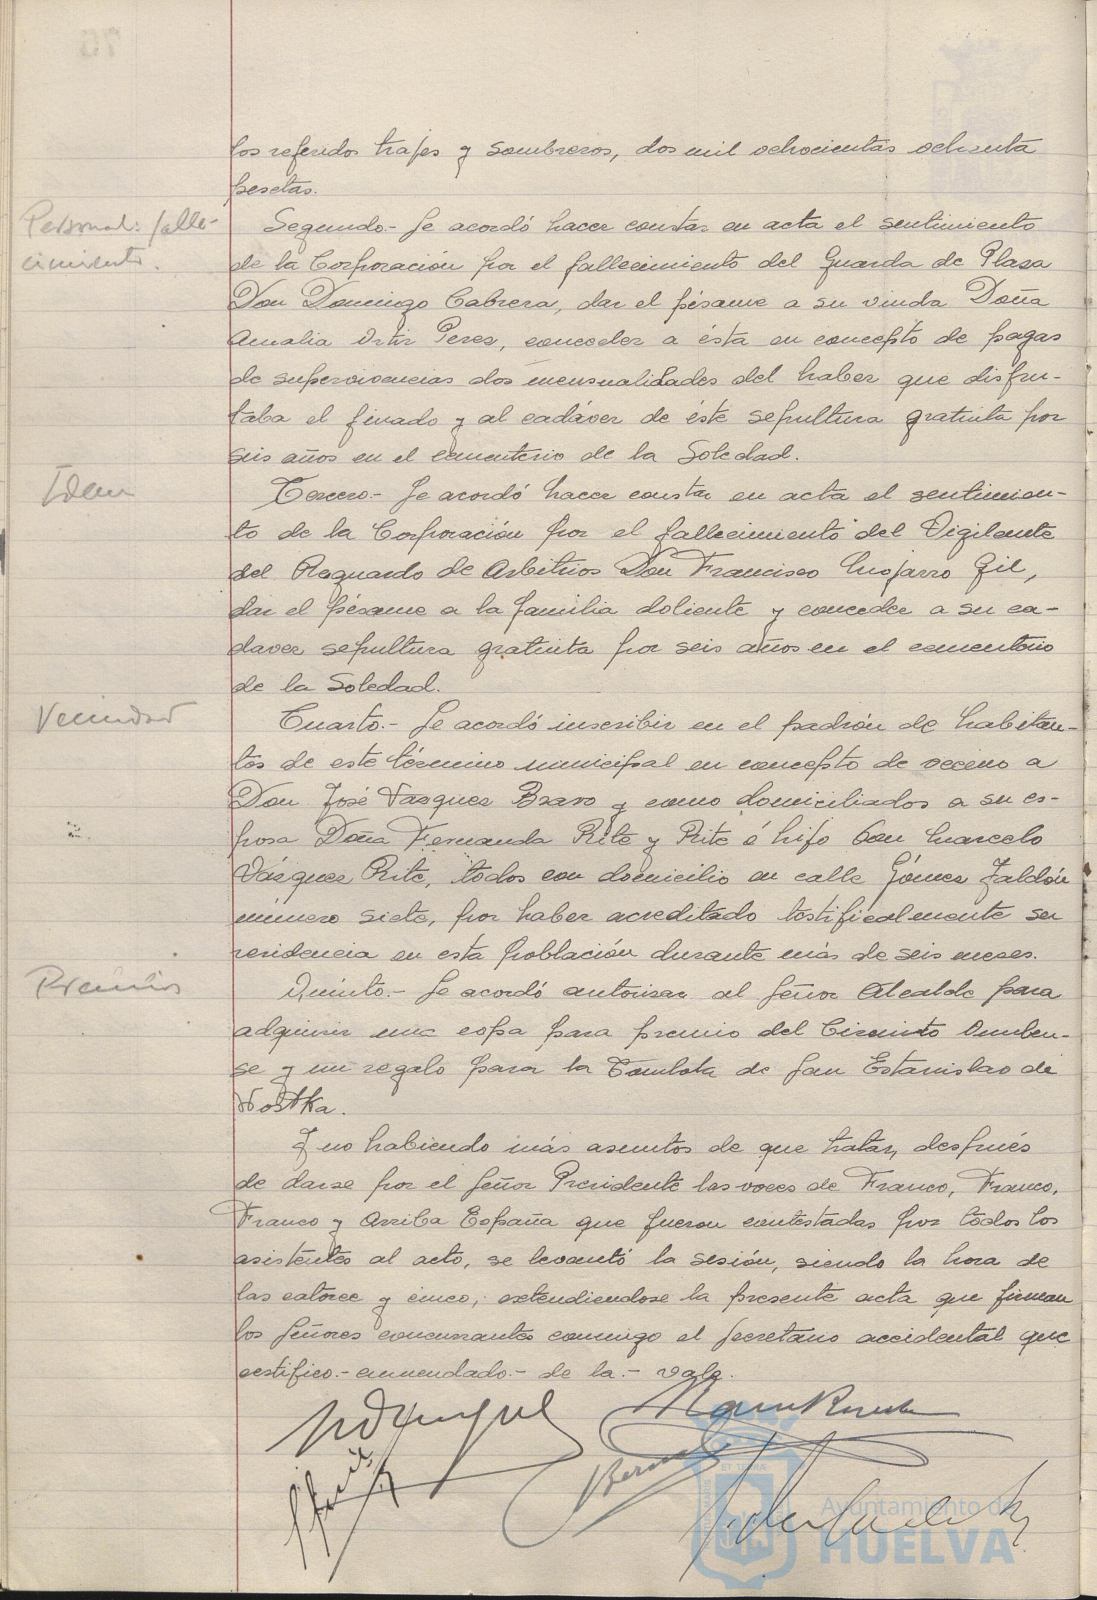 los referidos trajes y sombreros, dos mil ochocientas ochenta
pesetas.
Personal: falle-
cimiento.
Segundo.- Se acordó hacer constar en acta el sentimiento
de la Corporación por el fallecimiento del Guarda de Plaza
Don Domingo Cabrera, dar el pésame a su viuda Doña
Amalia Ortir Peres, conceder a ésta en concepto de pagas
de supervivencias dos mensualidades del haber que disfru-
taba el finado y al cadáver de éste sepultura gratuita por
seis años en el cementerio de la Soledad.
Idem
Tercero.- Se acordó hacer constar en acta el sentimien-
to de la Corporación por el fallecimiento del Vigilante
del Resguardo de Arbitrios Don Francisco Mojarro Gil,
dar el pésame a la familia doliente y conceder a su ca-
daver sepultura gratuita por seis años en el cementerio
de la Soledad.
Vecindad
Cuarto.- Se acordó inscribir en el padrón de habitan-
tes de este término municipal en concepto de vecino a
Don José Vasques Bravo y como domiciliados a su es-
posa Doña Fernanda Rite y Rite é hijo Don Marcelo
Vásques Rite, todos con domicilio en calle Gómes Jaldón
número siete, por haber acreditado testificalmente su
residencia en esta población durante más de seis meses.
Premios
Quinto.- Se acordó autorisar al Señor Alcalde para
adquirir una copa para premio del Circuito Onuben-
se y un regalo para la Tombola de San Estanislao de
Kostka.
Y no habiendo más asuntos de que tratar, después
de darse por el Señor Presidente las voces de Franco, Franco,
Franco y Arriba España que fueron contestadas por todos los
asistentes al acto, se levantó la sesión, siendo la hora de
las catorce y cinco, extendiendose la presente acta que firman
los Señores concurrantes conmigo el Secretario accidental que
certifico.- enmendado.- de la.- vale.
Bernal
Ayuntamiento de
HUELVA